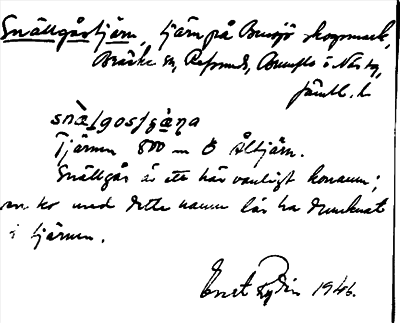 Snällgåstjärn, tjärn på Bensjö skogsmark,
Bräcke sn, Refsunds, Brunflo o Näs tg,
Jämtl. l.
Tjärnen 800 m Ö Åltjärn.
Snällgås är ett här vanligt konamn;
en ko med detta namn lär ha drunknat
i tjärnen.
1946.